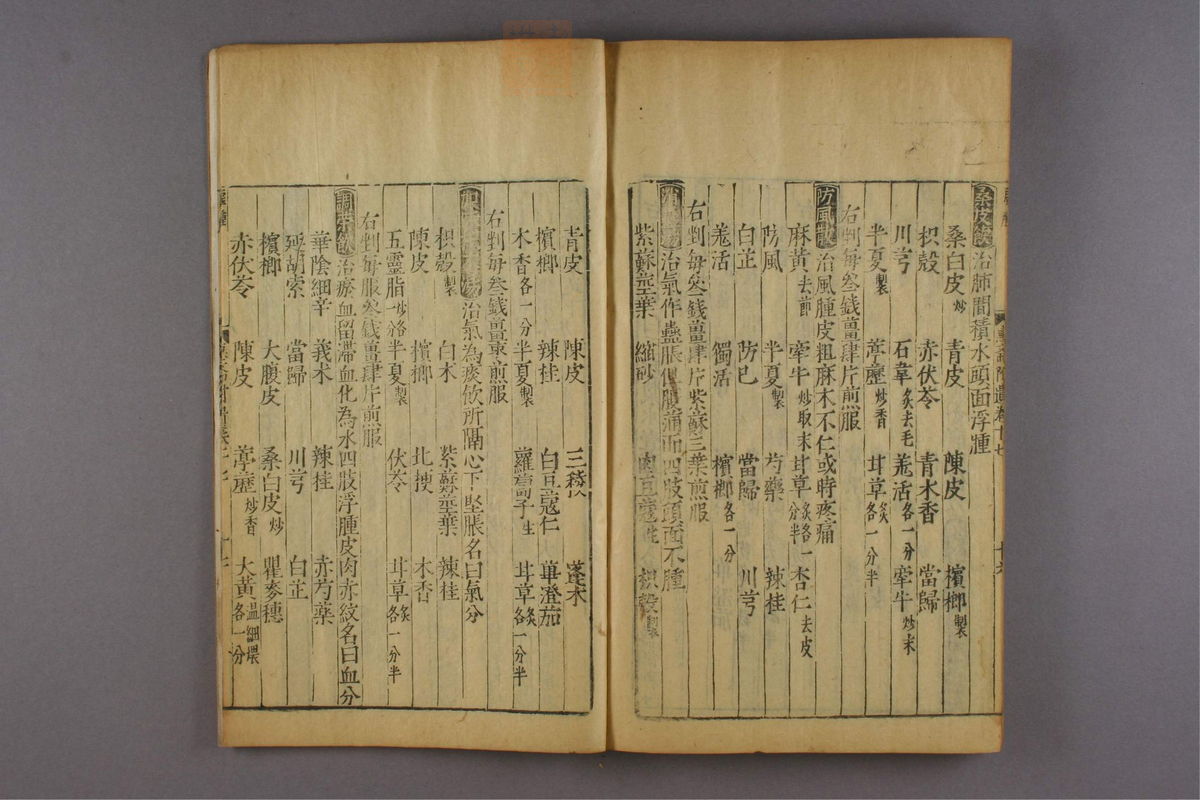 桑皮散治肺間積水頭面浮腫
桑白皮炒 青皮 陳皮 檳榔製
枳殼 赤伏苓 青木香 當歸
川芎 石韋炙去毛 羗活各一分 牽牛炒末
半夏製 葶藶炒香 甘草炙各一分半
右剉每叁錢薑肆片煎服
防風散治風腫皮粗麻木不仁或時疼痛
麻黃去節 牽牛炒取末 甘草炙各一分半 杏仁去皮
防風 半夏製 芍藥 辣桂
白芷 防已 當歸 川芎
羗活 獨活 檳榔各一分
右剉每叁錢薑肆片紫蘇三葉煎服
治氣作蠱脹但腹滿而四肢頭面不腫
紫蘇莖葉 縮砂 肉豆蔻 枳殼製
青皮 陳皮 三稜 蓬朮
檳榔 辣桂 白豆蔻仁 蓽澄茄
木香各一分 半夏製 蘿蔔子生 甘草炙各一分半
右剉每叁錢薑棗煎服
治氣為痰飲所隔心下堅脹名曰氣分
枳殼製 白朮 紫蘇莖葉 辣桂
陳皮 檳榔 北梗 木香
五靈脂炒各一分 半夏製 伏苓 甘草炙各一分半
右剉每服叁錢薑肆片煎服
調榮飲治瘀血留滯血化為水四肢浮腫皮肉赤紋名曰血分
華陰細辛 莪朮 辣桂 赤芍藥
延胡索 當歸 川芎 白芷
檳榔 大腹皮 桑白皮炒 瞿麥穗
赤伏苓 陳皮 葶藶炒香 大黃濕細環各一分